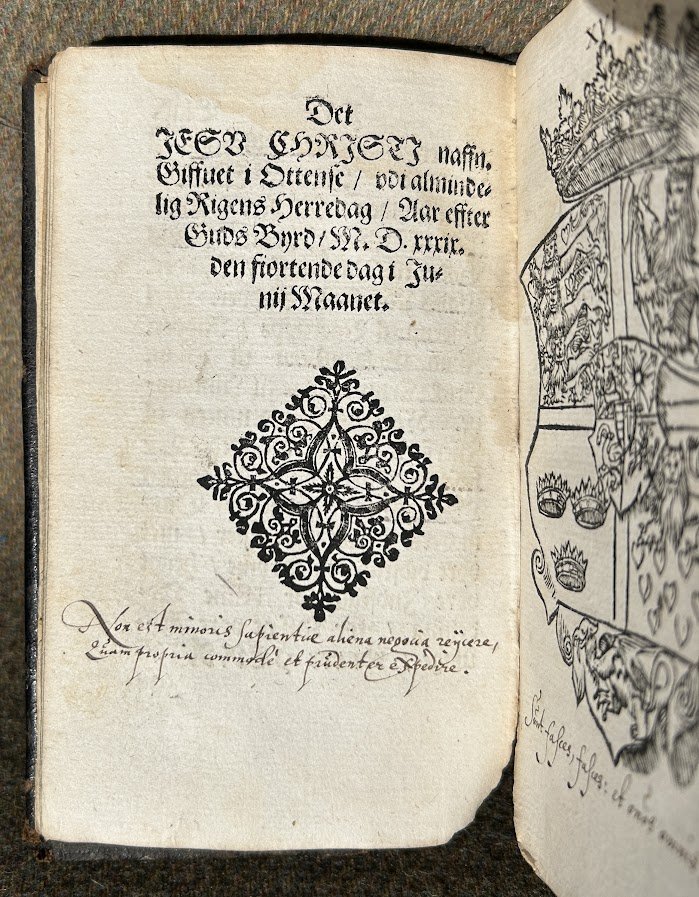 Det
JESV CHRISTI naffn.
Giffuet i Ottense / vdi alminde-
lig Rigens Herredag / Aar effter
Guds Byrd / M. D. xxxix.
den fiortende dag i Ju-
nij Maanet.
Non est minoris sapientiæ aliena negocia reijcere,
Quam propria commodè et prudenter expedire.
XVI
fasces, fasces: et